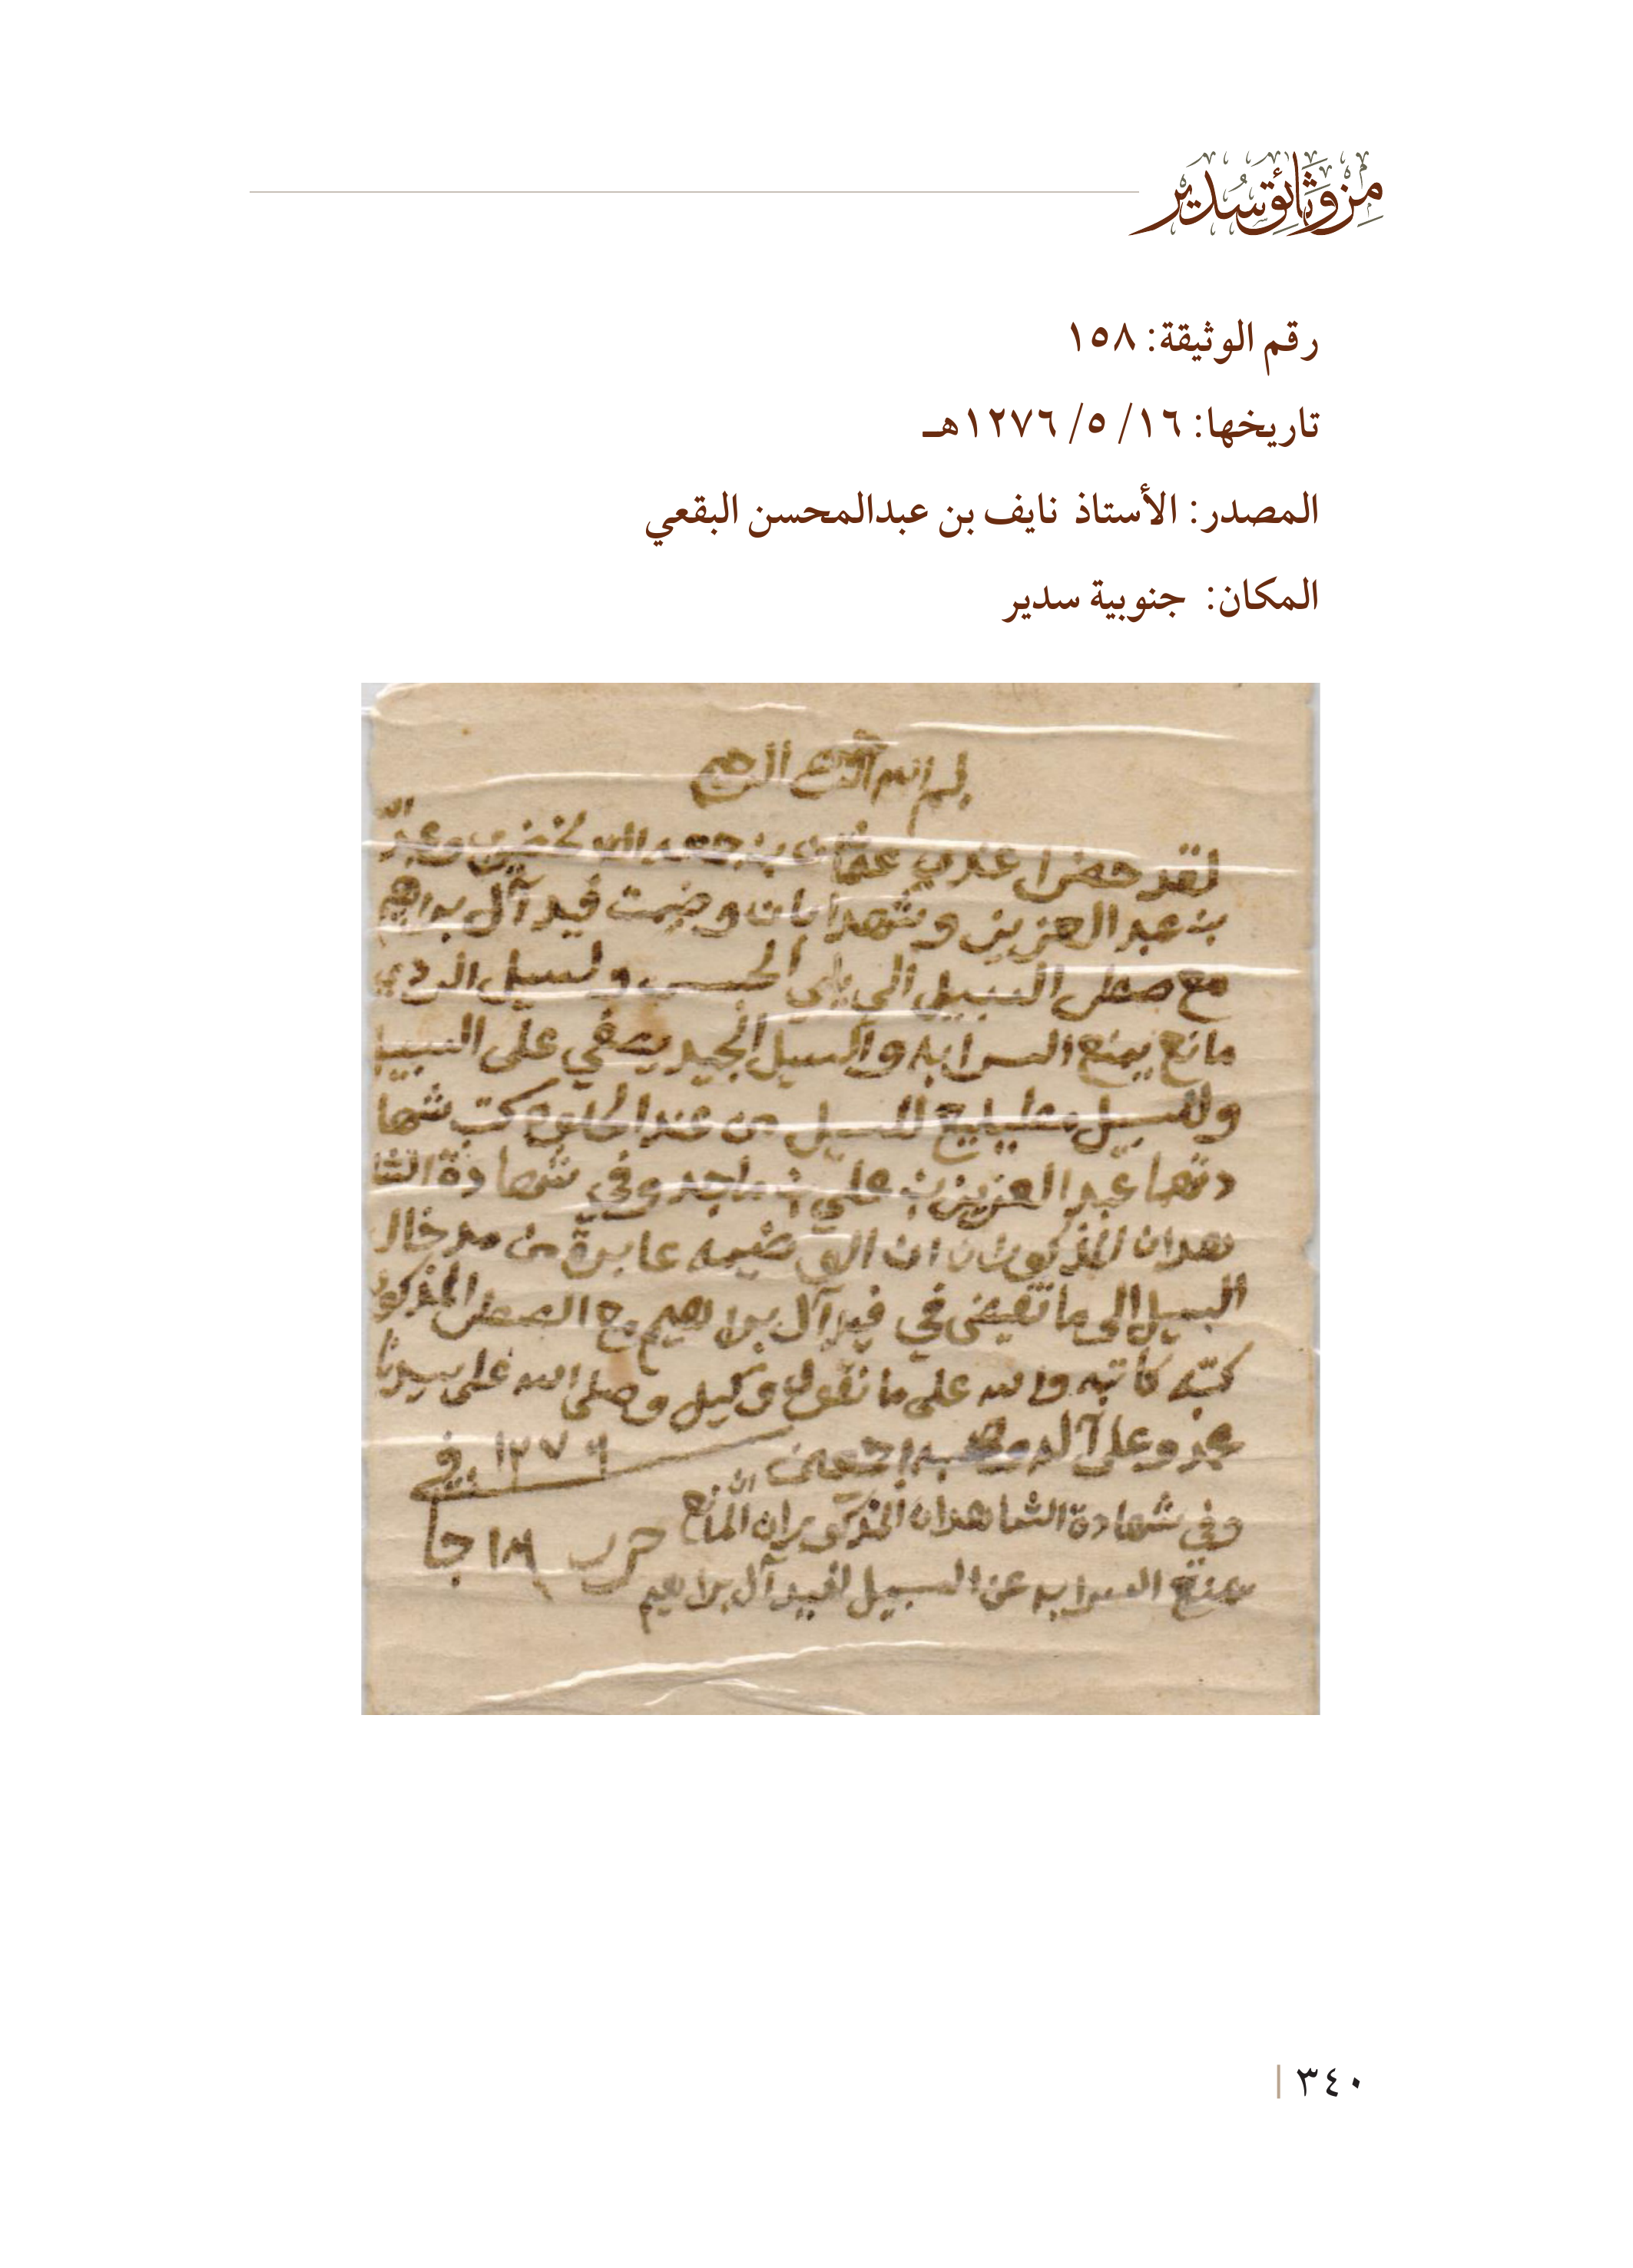 من وثائق سدير
رقم الوثيقة: ١٥٨
تاريخها: ١٦/ ٥/ ١٢٧٦هـ
المصدر: الأستاذ نايف بن عبدالمحسن البقعي
المكان: جنوبية سدير
بسم الله الرحمن الرحيم
لقد حضرا عندي عثمان بن حمد وعبد الله
بن عبد العزيز وشهدا بان وضيمت فيد آل براهيم
مع السبيل الي يلي الحبس ولسيل الردي
مانع يمنع السرابه والسيل الجيد يضفي على السبيل
ولسبيل للسيل من عند كتب شها
دتهما عبد العزيز بن علي بن ماجد وفي شهادة الشا
هدان المذكوران ان الوضيمه عابرة من مدخال
السيل الى ما تفيض في فيد آل براهيم مع المذكور
كتبه كاتبه والله على ما نقول وكيل وصلى الله على سيدنا
محمد وعلى آله وصحبه اجمعين ١٢٧٦ في
وفي شهادة الشاهدان المذكوران ان المانع حرر ١٦ جا
يمنع السرابه عن السبيل لفيد آل براهيم
٣٤٠